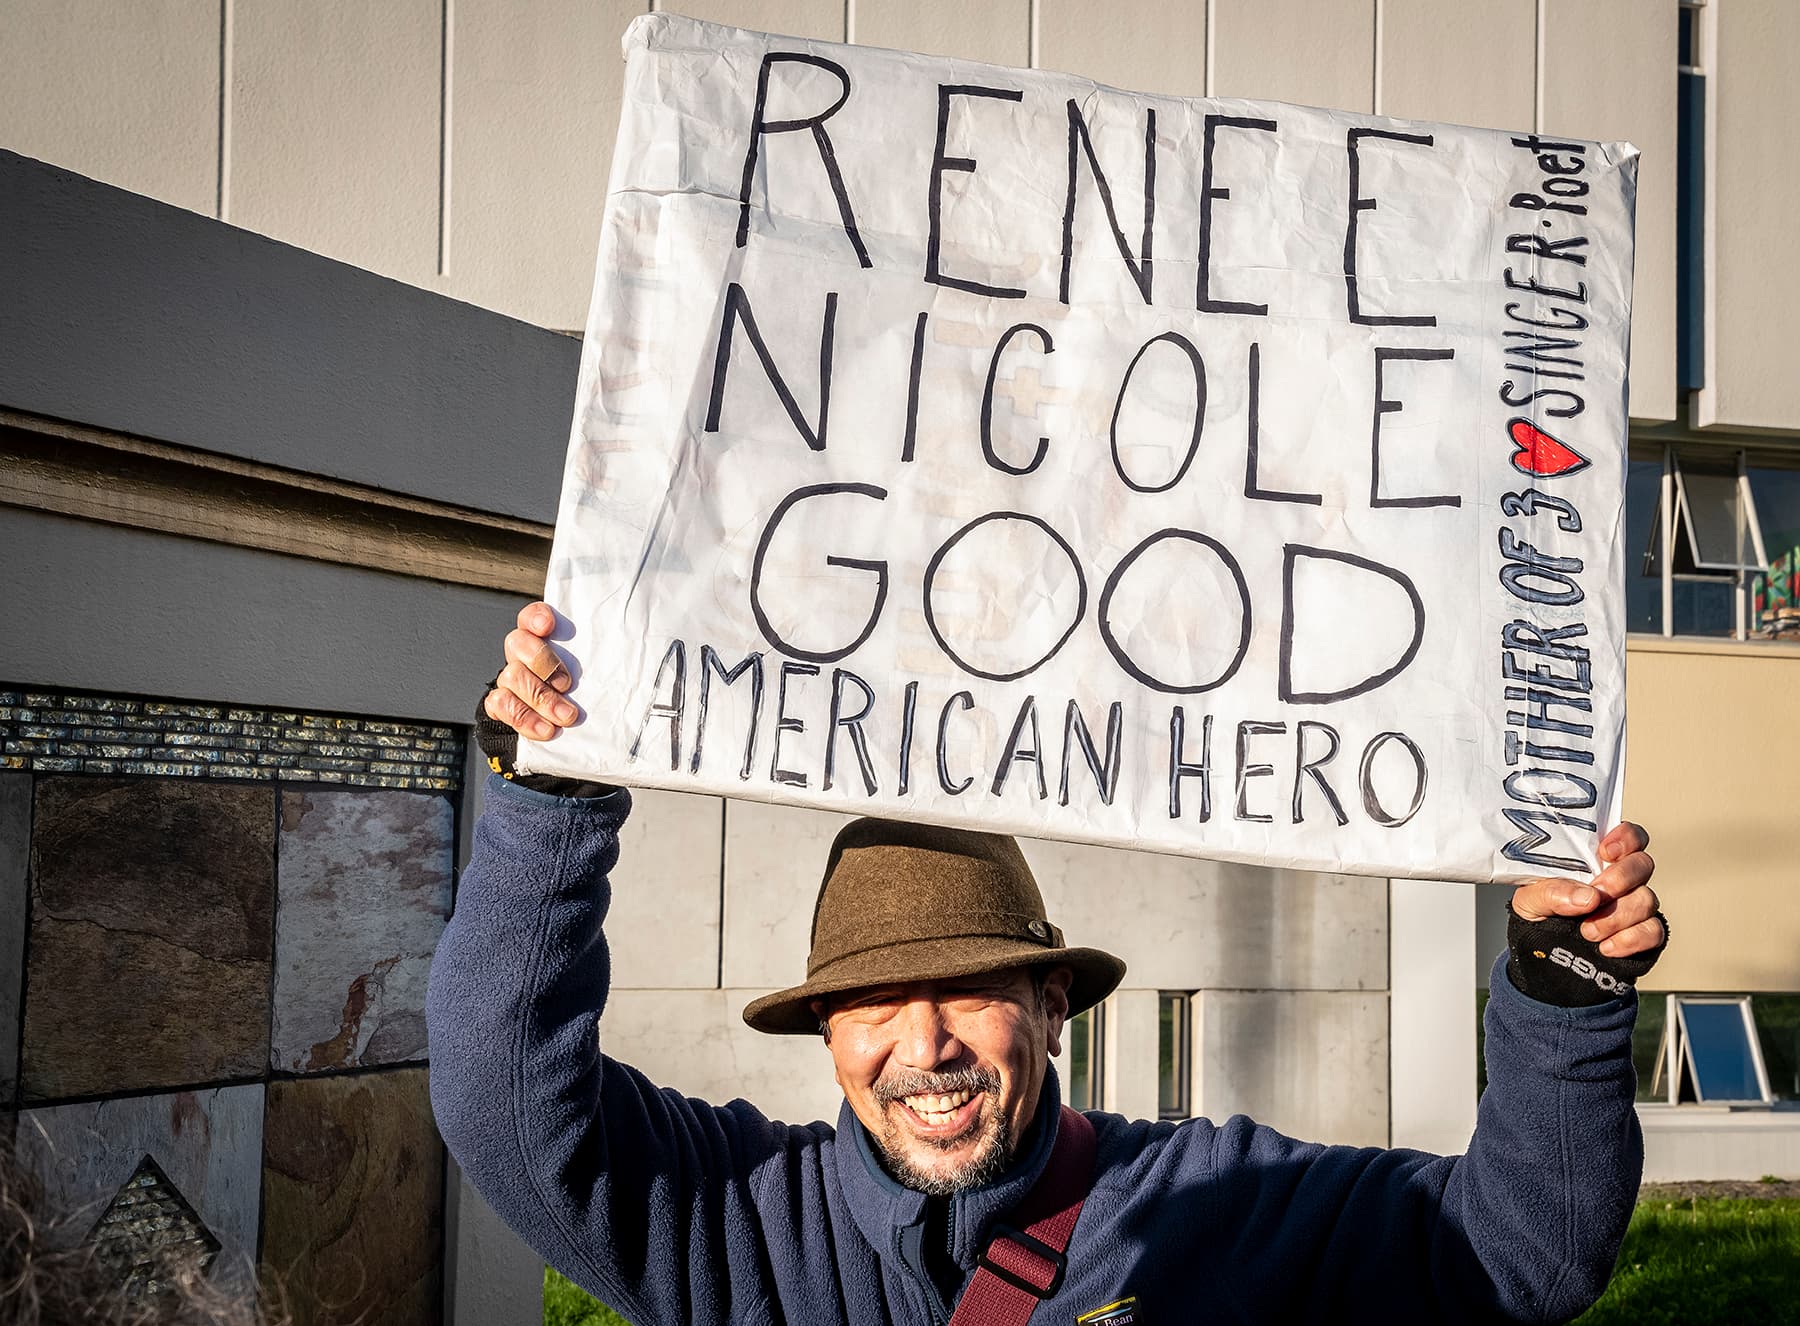 RENEE
NICOLE
GOOD
AMERICAN HERO
MOTHER OF 3 ♥ SINGER · Poet
L.L.Bean